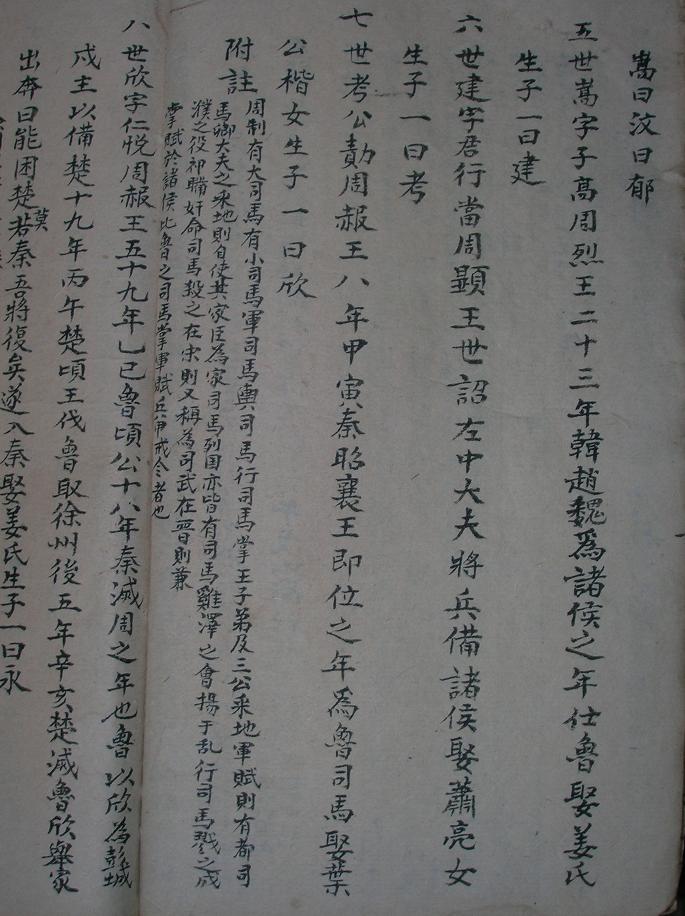 嵩曰汶曰郁
五世嵩字子高周烈王二十三年韓趙魏為諸侯之年仕魯娶姜氏
生子一曰建
六世建字居行當周顯王世詔左中大夫將兵備諸侯娶蕭亮女
生子一曰考
七世考公勣周赧王八年甲寅秦昭襄王即位之年為魯司馬娶葉
公楷女生子一曰欣
附註
周制有大司馬有小司馬軍司馬輿司馬行司馬掌王子弟及三公采地軍賦則有都司
馬卿大夫之采地則自使其家臣為家司馬列国亦皆有司馬雞澤之會揚于乱行司馬戮之成
濮之役祁瞞奸命司馬殺之在宋則又稱為司武在晋則兼
掌賦於諸侯比魯之司馬掌軍賦兵甲戒令者也
八世欣字仁悅周赧王五十九年乙巳魯頃公十八年秦滅周之年也魯以欣為彭城
戍主以備楚十九年丙午楚頃王伐魯取徐州後五年辛亥楚滅魯欣舉家
出奔曰能困楚莫若秦吾將復矣遂入秦娶姜氏生子一曰永